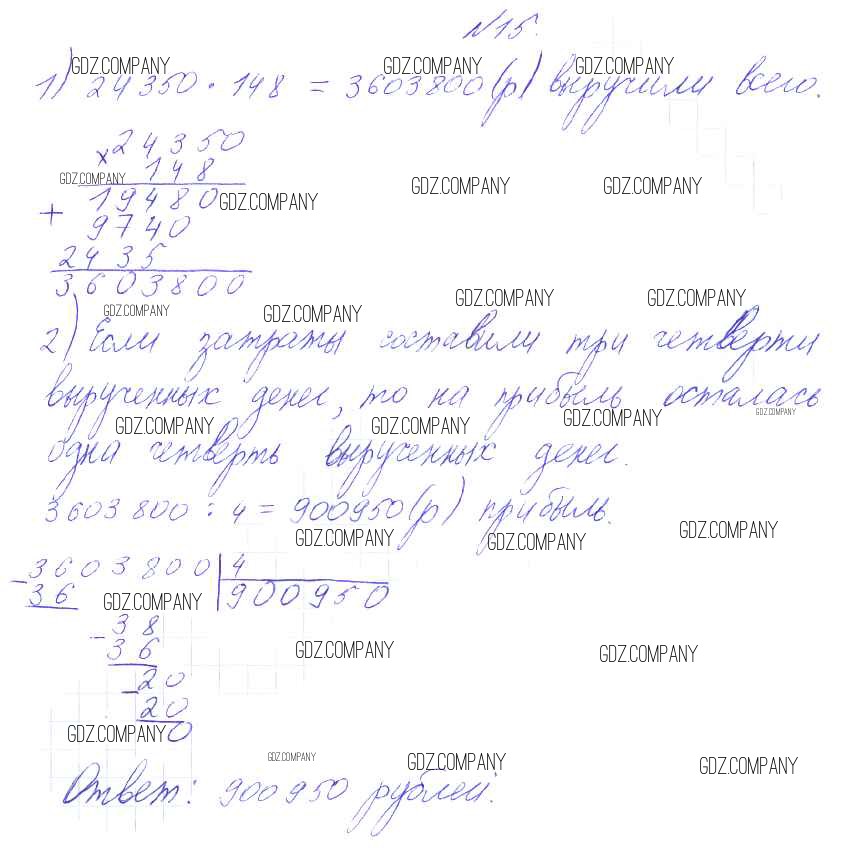 №15.
1) 24350 · 148 = 3603800 (р) выручили всего.
× 24350
148
+ 19480 0
9740
2435
3603800
2) Если затраты составили три четверти
вырученных денег, то на прибыль осталась
одна четверть вырученных денег.
3603800 : 4 = 900950 (р) прибыль.
- 3603800 | 4
36 | 900950
- 38
36
- 20
20
0
Ответ: 900950 рублей.
GDZ.COMPANY GDZ.COMPANY GDZ.COMPANY
GDZ.COMPANY GDZ.COMPANY GDZ.COMPANY GDZ.COMPANY
GDZ.COMPANY GDZ.COMPANY GDZ.COMPANY GDZ.COMPANY
GDZ.COMPANY GDZ.COMPANY GDZ.COMPANY GDZ.COMPANY
GDZ.COMPANY GDZ.COMPANY GDZ.COMPANY
GDZ.COMPANY GDZ.COMPANY GDZ.COMPANY
GDZ.COMPANY GDZ.COMPANY GDZ.COMPANY GDZ.COMPANY